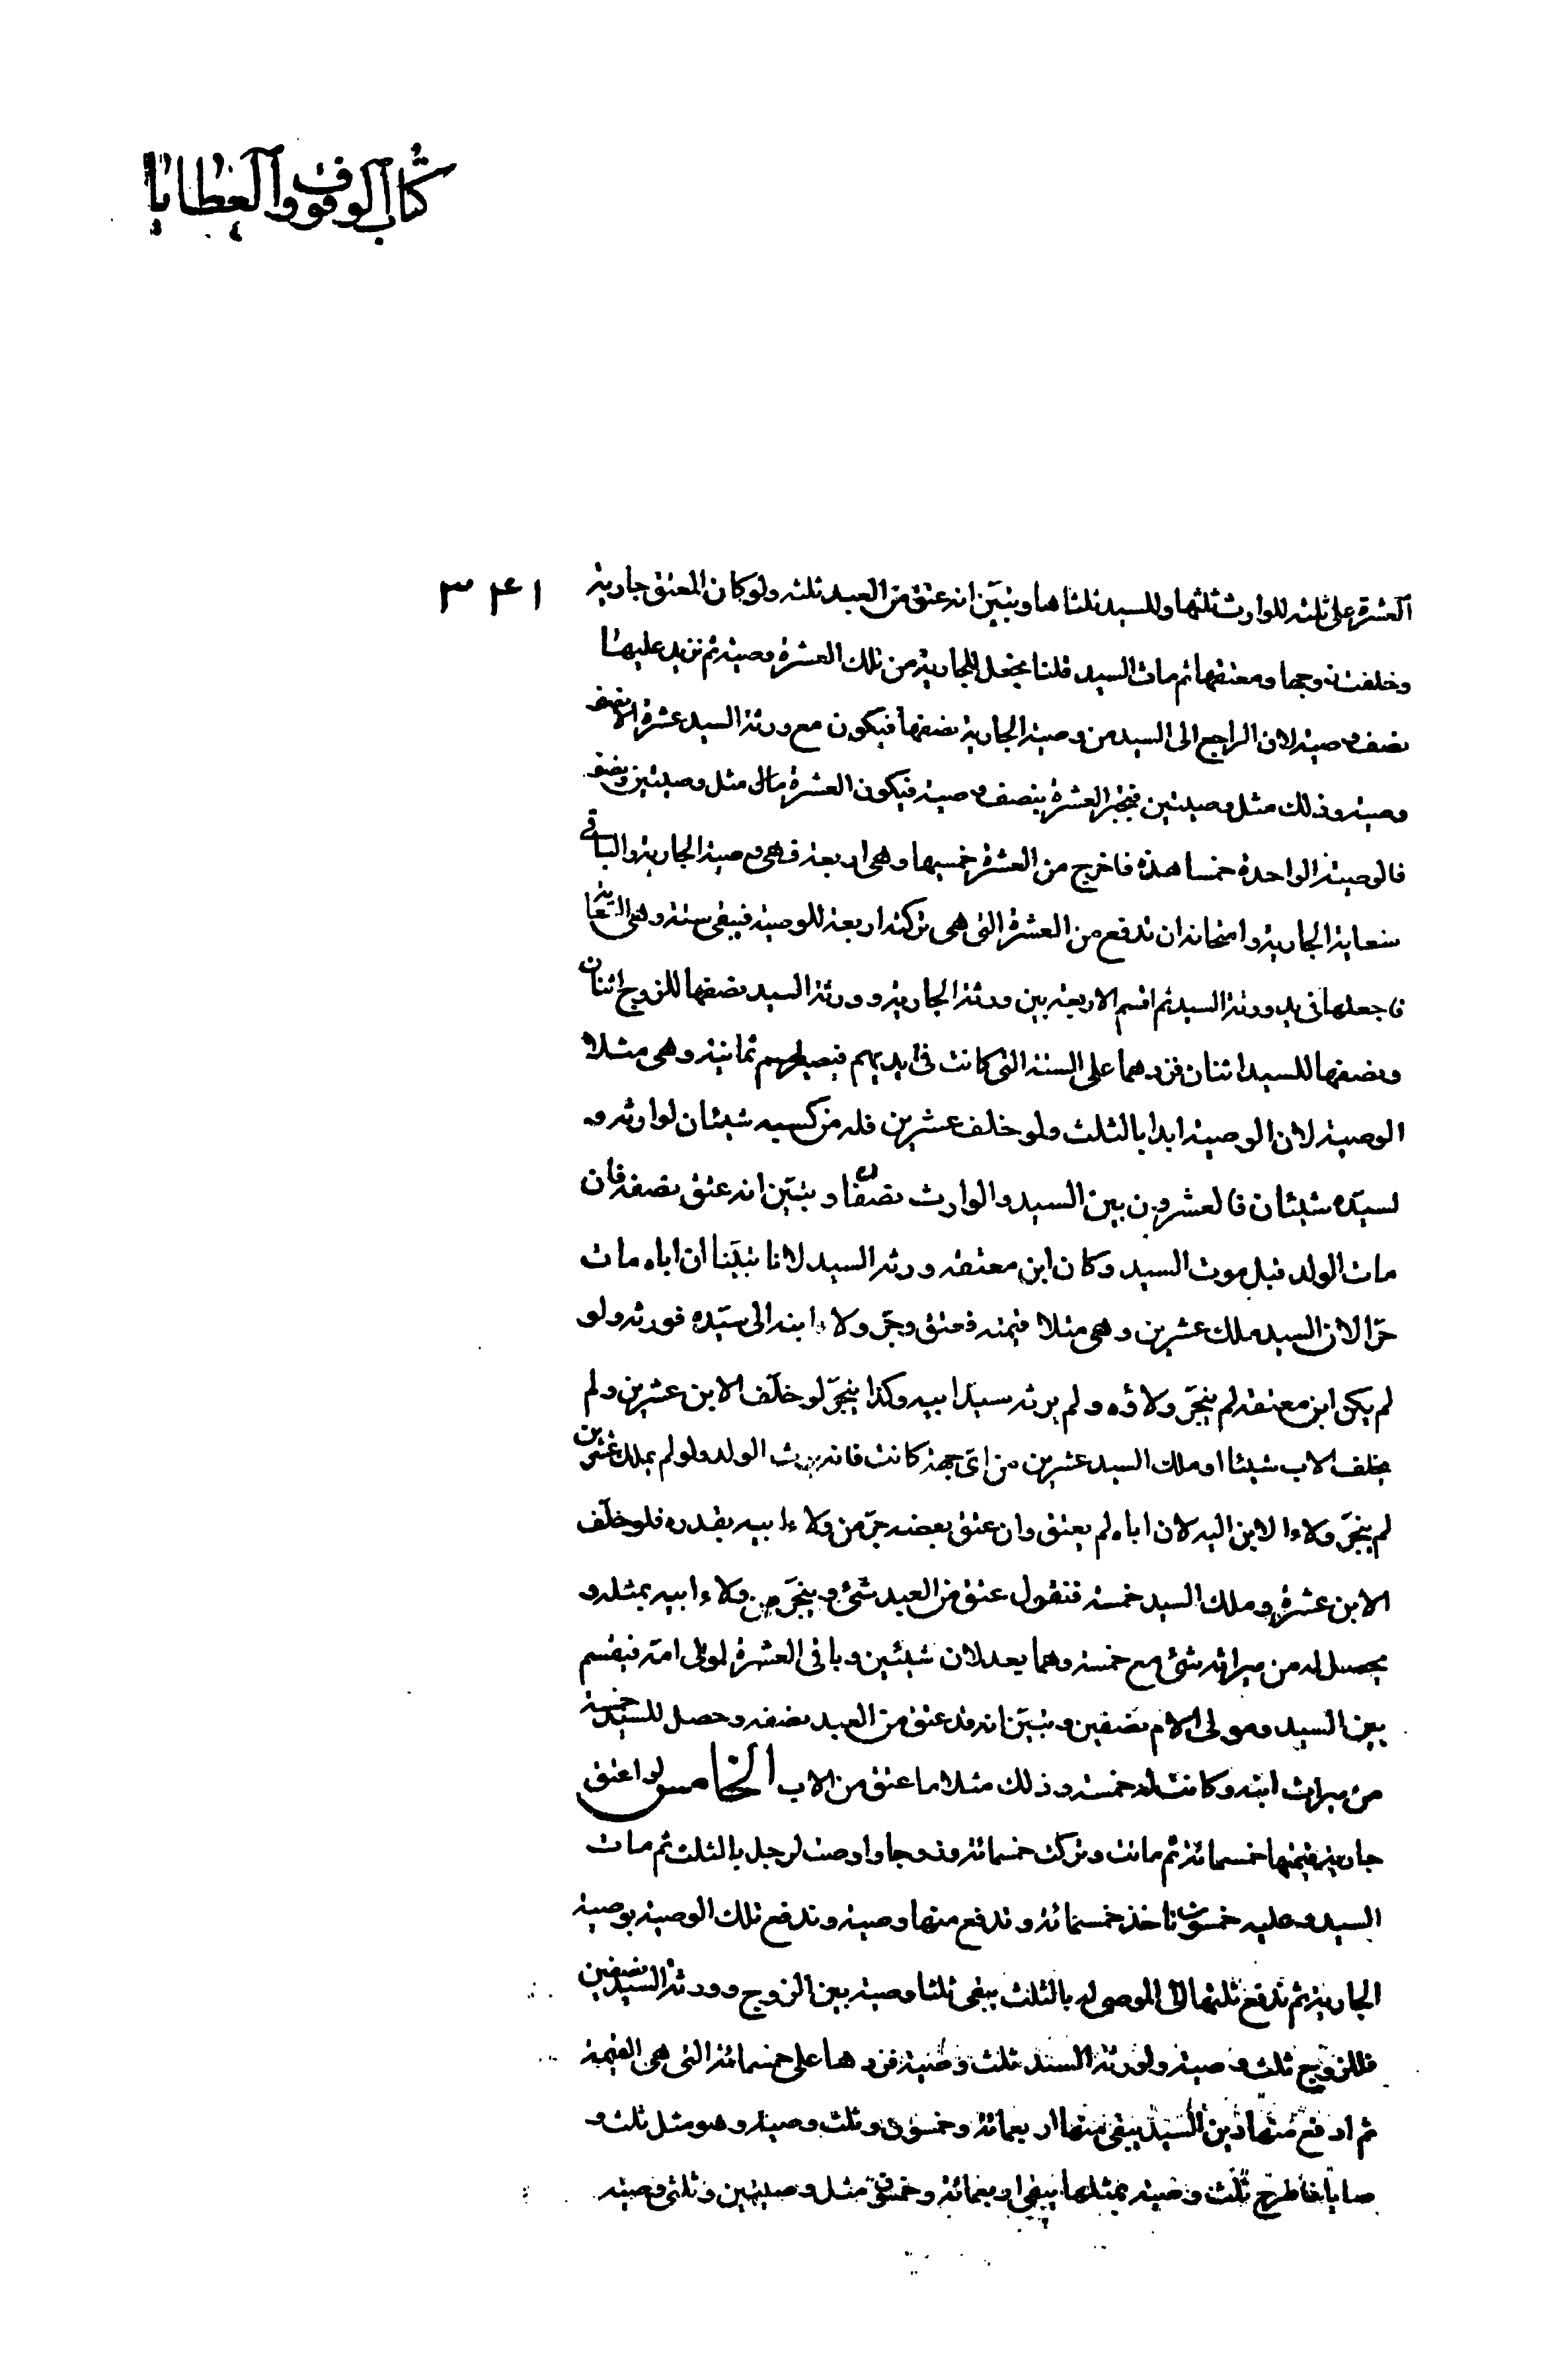 كتاب الوقوف والعطايا
٣٤١
العشرة على ثلثه للوارث ثلثها وللسيد ثلثاها ويتبين انه عتق من العبد ثلثه ولو كان المعتق جارية
وخلفت زوجها ومعتقها ثم مات السيد قلنا نجعل للجارية من تلك العشرة وصية ثم نزيد عليها
نصف وصية لان الراجع الى السيد من وصية الجارية نصفها فيكون مع ورثة السيد عشرة الا نصف
وصية وذلك مثل وصيتين فتجبر العشرة بنصف وصية فيكون العشرة مال مثل وصيتين ونصف
فالوصية الواحدة خمسا هذه فاخرج من العشرة خمسيها وهى اربعة فهى وصية الجارية والباقى
سعاية الجارية وامتحانه ان تدفع من العشرة التى هى تركته اربعة للوصية فيبقى ستة وهى السعاية
فاجعلها فى يد ورثة السيد ثم اقسم الاربعة بين ورثة الجارية وورثة السيد نصفها للزوج اثنان
ونصفها للسيد اثنان فزدهما على الستة التى كانت فى ايديهم فيصير لهم ثمانية وهى مثلا
الوصية لان الوصية ابدا بالثلث ولو خلف عشرين فله من كسبه شيئان لوارثه و
لسيده شيئان فالعشرون بين السيد والوارث نصفان ويتبين انه عتق نصفه فان
مات الولد قبل موت السيد وكان ابن معتقه ورثه السيد لانا تبينا ان اباه مات
حرا لان السيد ملك عشرين وهى مثلا قيمته فعتق وجر ولاء ابنه الى سيده فورثه ولو
لم يكن ابن معتقه لم ينجر ولاؤه ولم يرثه سيد ابيه وكذا ينجر لو خلف الابن عشرين ولم
يخلف الاب شيئا او ملك السيد عشرين من اى جهة كانت فانه يرث الولد ولو لم يملك عشرين
لم ينجر ولاء الابن اليه لان اباه لم يعتق وان عتق بعضه جر من ولاء ابيه بقدره فلو خلف
الابن عشرة وملك السيد خمسة فنقول عتق من العبد شئ وينجر من ولاء ابيه بمثله و
يحصل له من ميراثه شئ مع خمسة وهما يعدلان شيئين وباقى العشرة لمولى امه فيقسم
بين السيد ومولى الام نصفين ويتبين انه قد عتق من العبد نصفه وحصل للسيد خمسة
من ميراث ابنه وكانت له خمسة وذلك مثلا ما عتق من الاب الخامس لو اعتق
جارية قيمتها خمسمائة ثم ماتت وتركت خمسمائة وزوجا واوصت لرجل بالثلث ثم مات
السيد وعليه خمسون تاخذ خمسمائة وتدفع منها وصية وتدفع تلك الوصية بوصية
الجارية ثم تدفع ثلثها الى الموصى له بالثلث يبقى ثلثا وصية بين الزوج وورثة السيد نصفين
فللزوج ثلث وصية ولورثة السيد ثلث وصية فزدها على خمسمائة التى هى القيمة
ثم ادفع منها دين السيد يبقى منها اربعمائة وخمسون وثلث وصية وهو مثل ثلث و
صايا فاطرح ثلث وصية بمثلها يبقى اربعمائة وخمسون مثل وصيتين وثلثى وصية